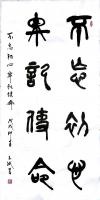 不忘初心
牢記使命
不忘初心牢記使命